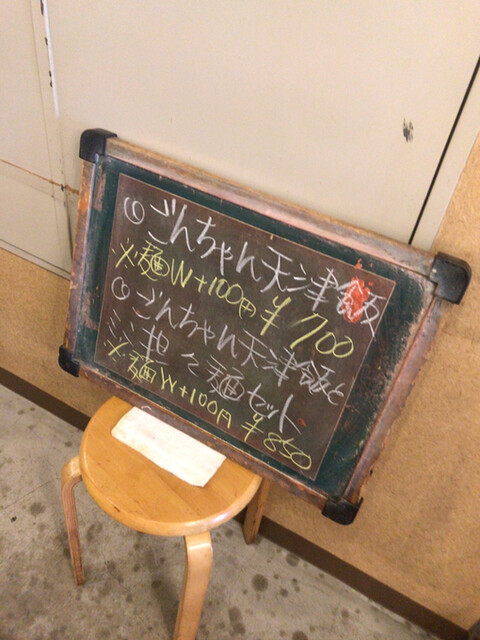 ◎ごんちゃん天津飯
※麺W+100円 ¥700
◎ごんちゃん天津飯と
ミニ担々麺セット
※麺W+100円 ¥850